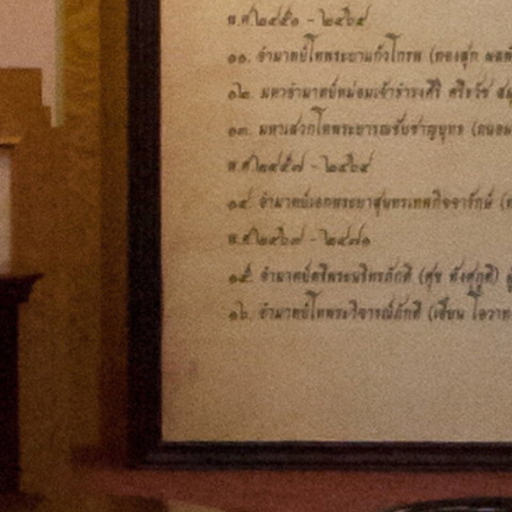 พ.ศ.๒๔๕๑ - ๒๔๖๔
๑๑. อำมาตย์โทพระยาแก้วโกรพ (ทองสุก
๑๒. มหาอำมาตย์หม่อมเจ้าธำรงศิริ ศรีธวัช
๑๓. มหาเสวกโทพระยารณชัยชาญยุทธ (ถนอม
พ.ศ.๒๔๕๗ - ๒๔๖๔
๑๔. อำมาตย์เอกพระยาสุนทรเทพกิจจารักษ์
พ.ศ.๒๔๖๗ - ๒๔๗๑
๑๕. อำมาตย์ตรีพระนรินทรภักดี (ศุข ทังศุภูติ)
๑๖. อำมาตย์โทพระวิจารณ์ภักดี (เฮียน โอวาท